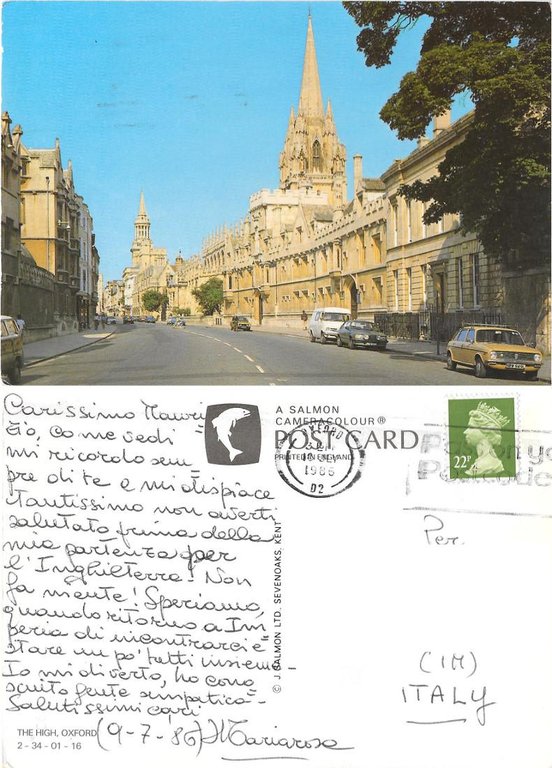 Carissimo Mauri
zio, come vedi
mi ricordo sem
pre di te e mi dispiace
tantissimo non averti
salutato prima della
mia partenza per
l'Inghilterra. Non
fa niente! Speriamo,
quando ritorno a Im
peria di incontrarci e
stare un po' tutti insieme.
Io mi diverto, ho cono
sciuto gente simpatica.
Salutissimi cari
(9-7-86) Mariarosa
THE HIGH, OXFORD
2-34-01-16
A SALMON
CAMERACOLOUR®
POST CARD
PRINTED IN ENGLAND
© J. SALMON LTD. SEVENOAKS, KENT
OXFORD
1986
D2
22P
Per.
(IM)
ITALY